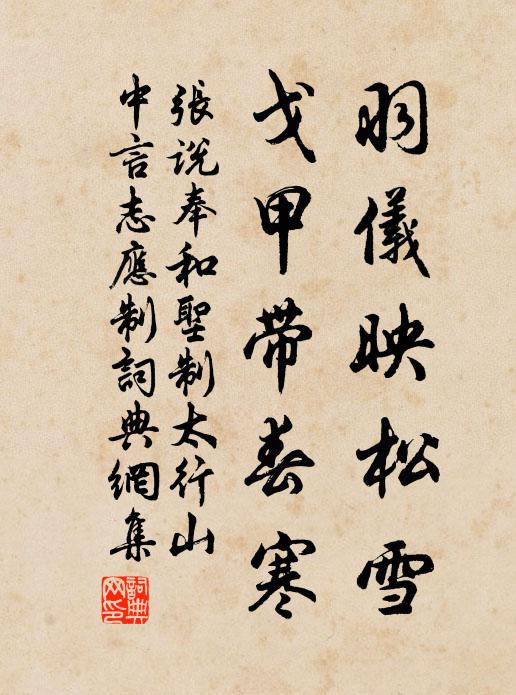 羽儀映松雪
戈甲帶春寒
張説奉和聖制太行山
中言志應制詞典網集
詞典網印